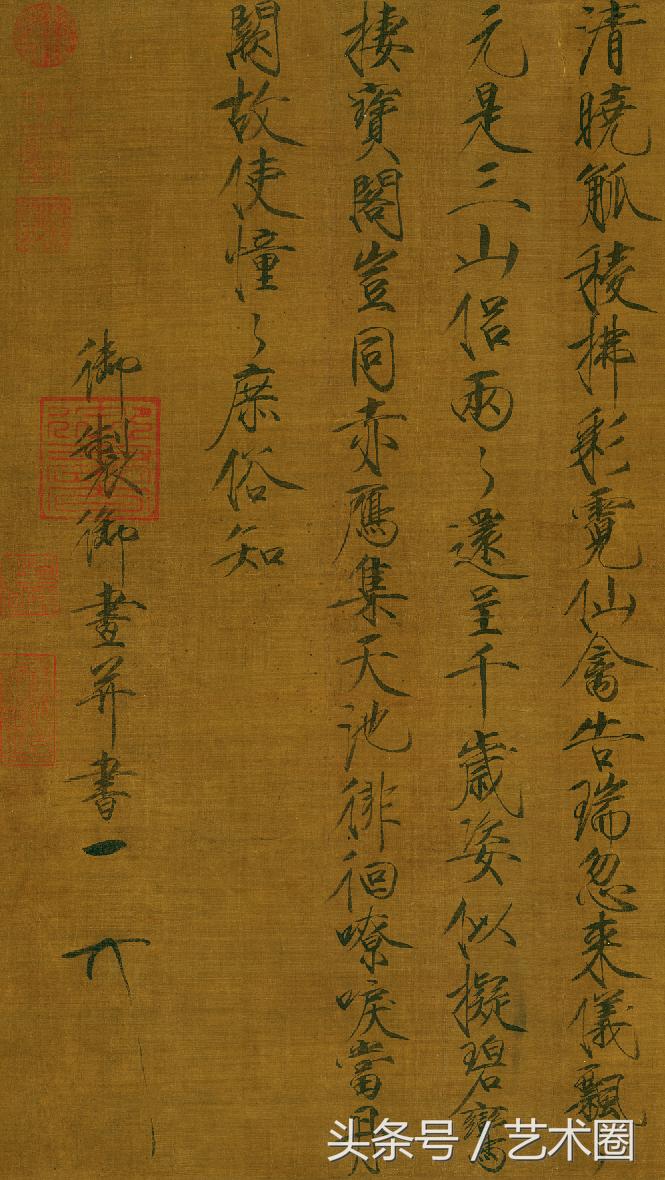 清曉觚稜拂彩霓仙禽告瑞忽来儀飄々
元是三山侶兩々還呈千歲姿似擬碧鸞
棲寶閣豈同赤鴈集天池徘徊嘹唳當丹
闕故使憧々庶俗知
御製御畫并書
头条号 / 艺术圈